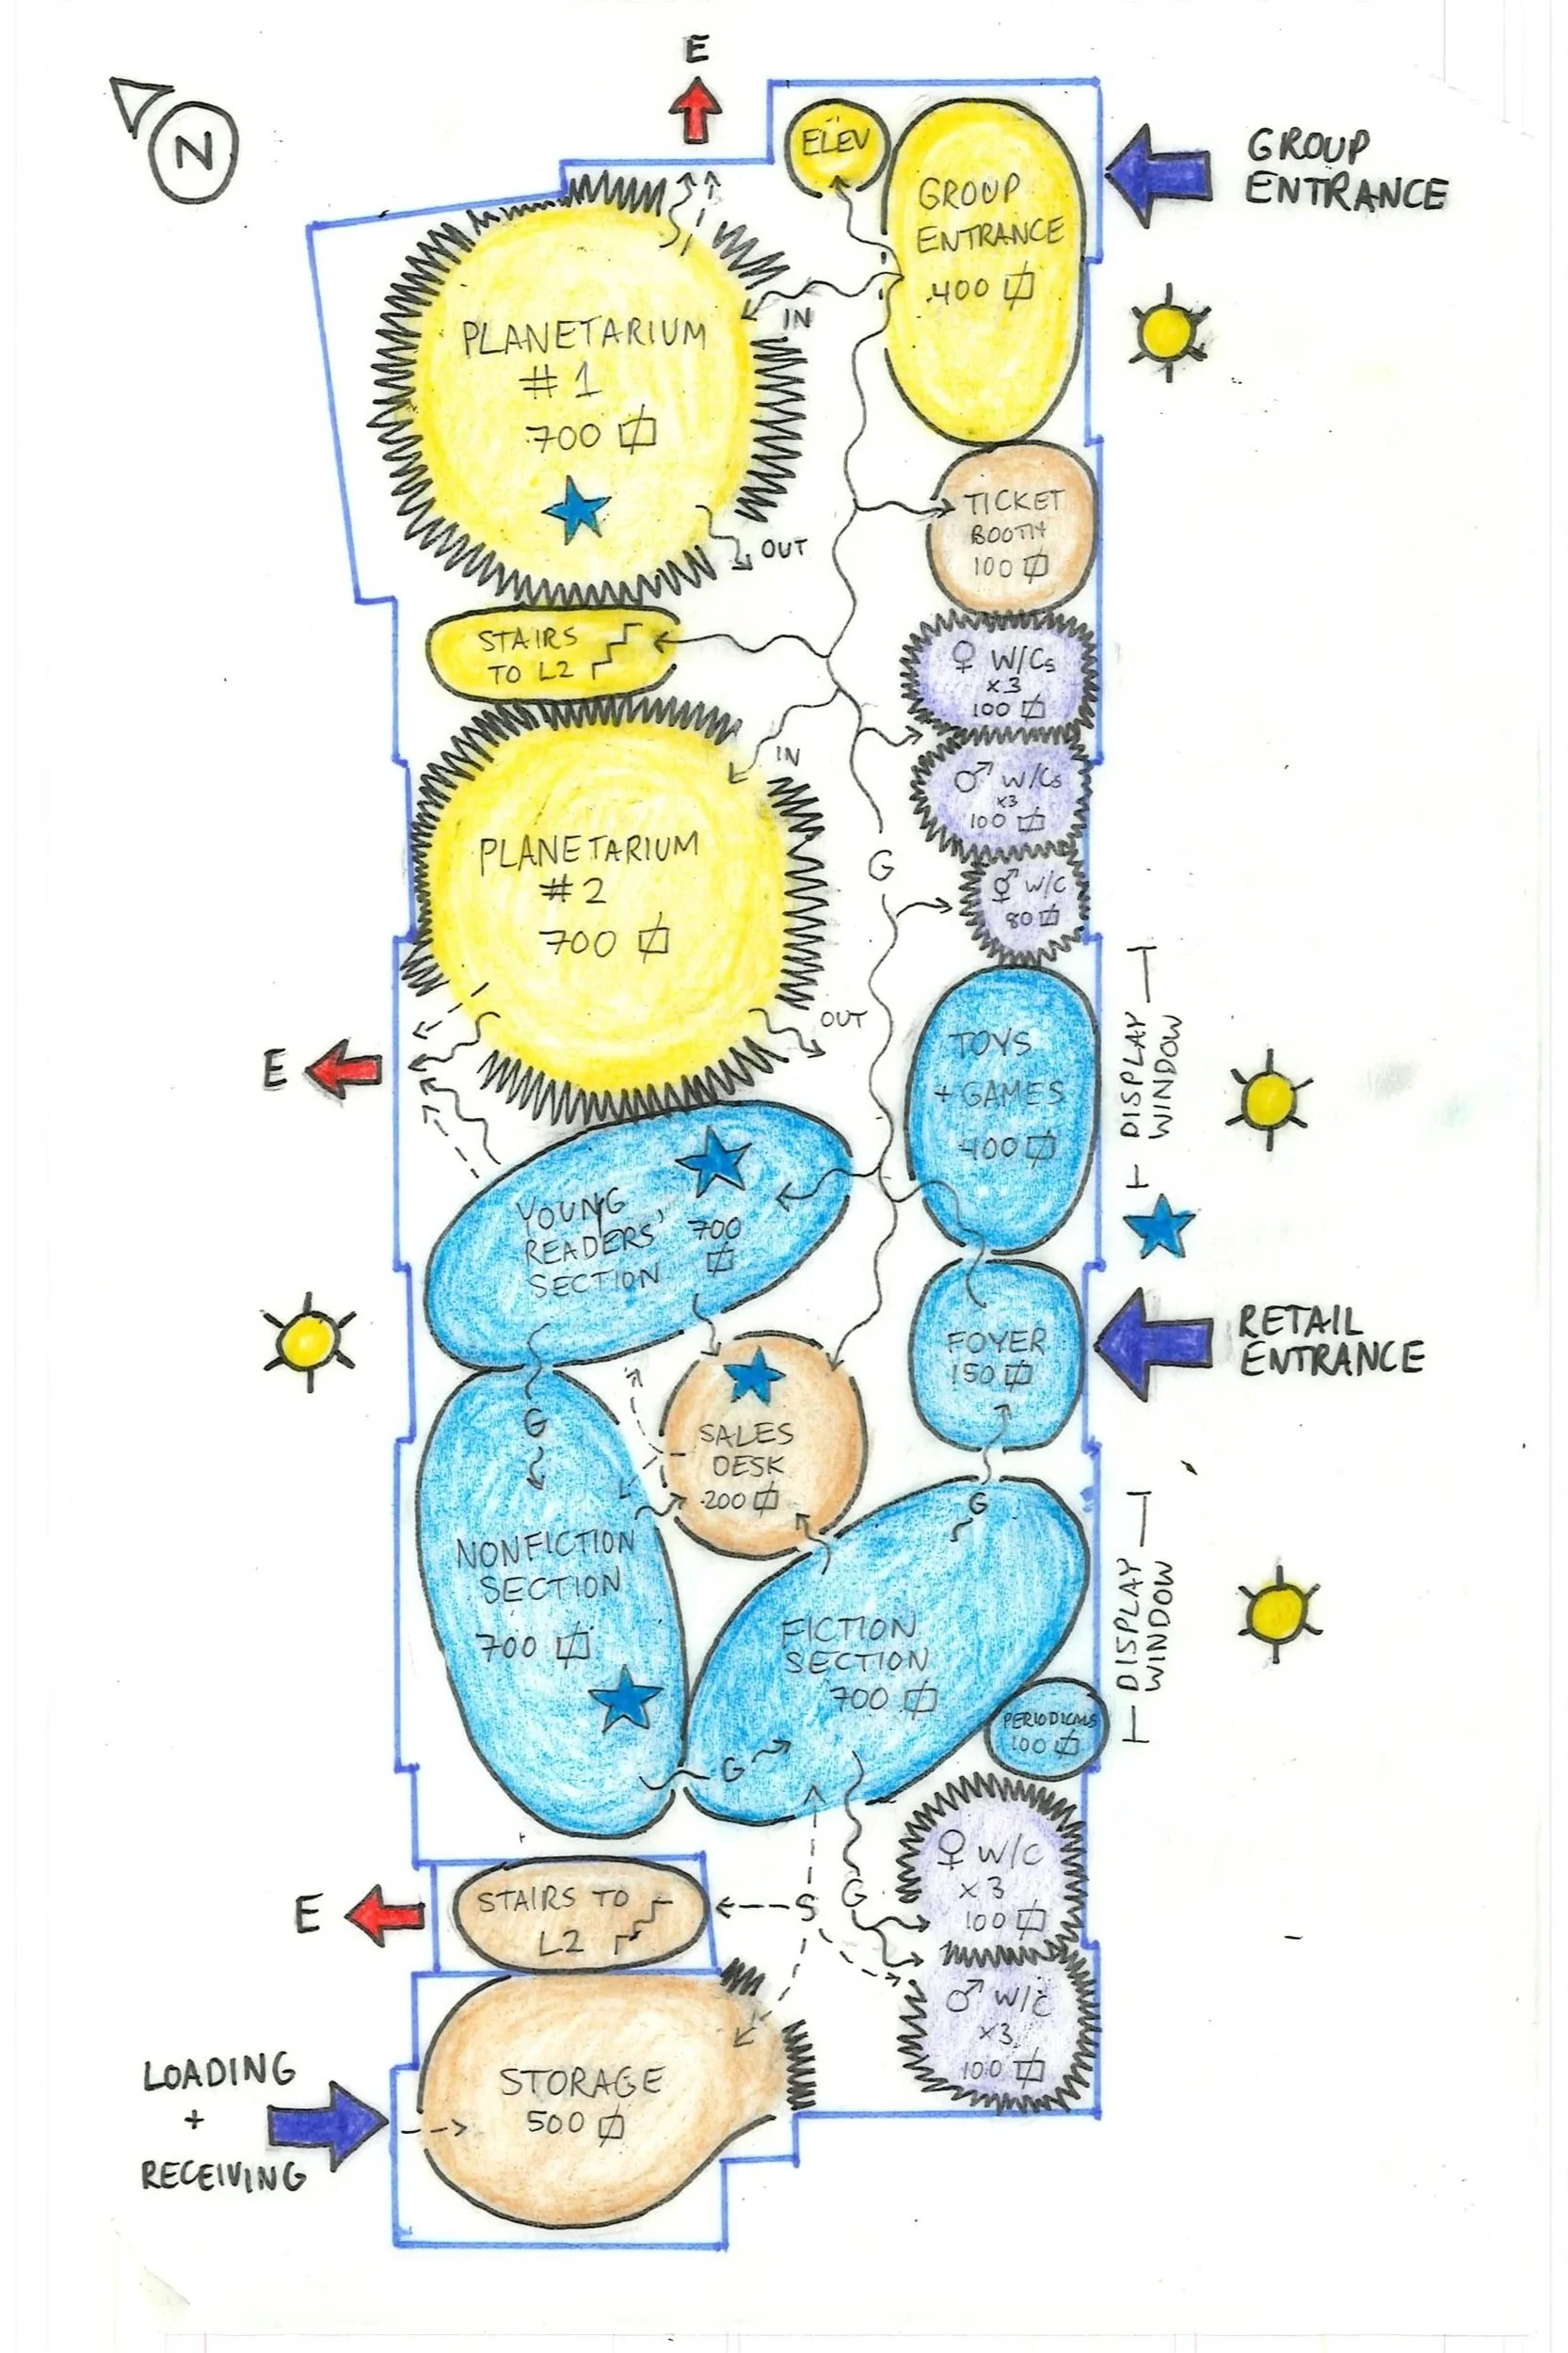 E
N
ELEV
GROUP
ENTRANCE
400
GROUP
ENTRANCE
PLANETARIUM
#1
700
IN
OUT
TICKET
BOOTH
100
STAIRS
TO L2
♀ W/Cs
x3
100
♂ W/Cs
x3
100
IN
G
⚥ W/C
80
PLANETARIUM
#2
700
OUT
E
TOYS
+ GAMES
400
DISPLAY
WINDOW
YOUNG
READERS'
SECTION
700
FOYER
150
RETAIL
ENTRANCE
G
SALES
DESK
200
G
NONFICTION
SECTION
700
FICTION
SECTION
700
DISPLAY
WINDOW
PERIODICALS
100
G
♀ W/C
x3
100
STAIRS TO
L2
E
S
G
♂ W/C
x3
100
STORAGE
500
LOADING
+
RECEIVING